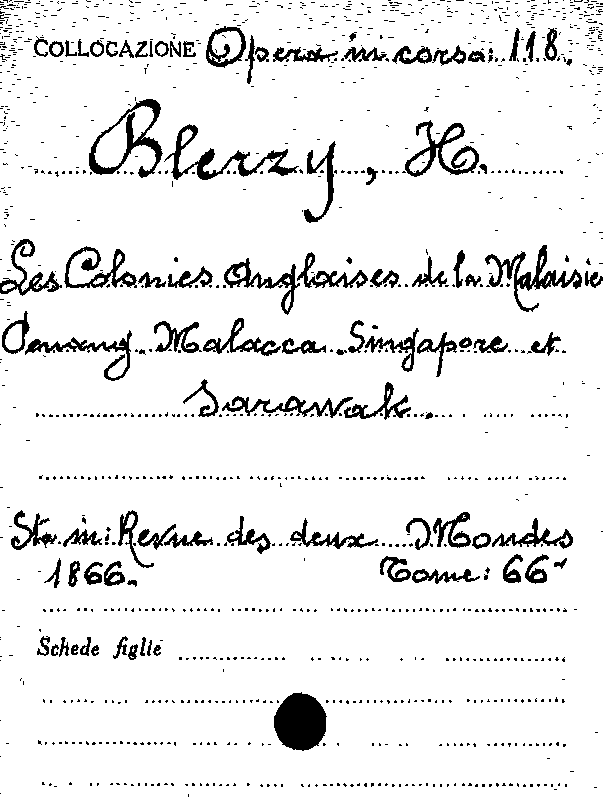 COLLOCAZIONE Opera in corso: 118.
Blerzy, H.
Les Colonies Anglaises de la Malaisie
Penang Malacca Singapore et
Sarawak.
Sta in: Revue des deux Mondes
1866. Tome: 66
Schede figlie